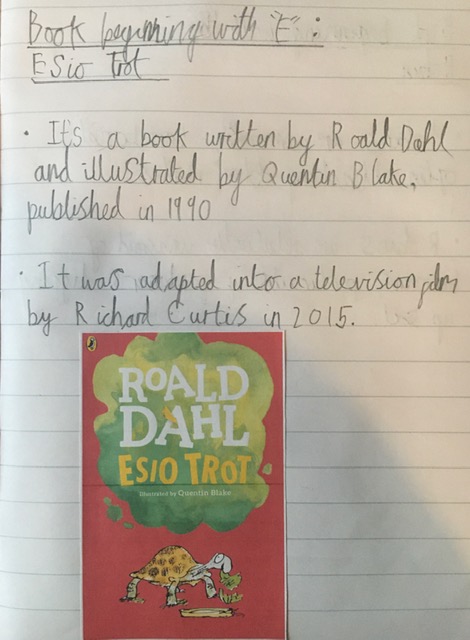 Book beginning with "E":
Esio Trot
· It's a book written by Roald Dahl
and illustrated by Quentin Blake,
published in 1990
· It was adapted into a television film
by Richard Curtis in 2015.
ROALD
DAHL
ESIO TROT
Illustrated by Quentin Blake